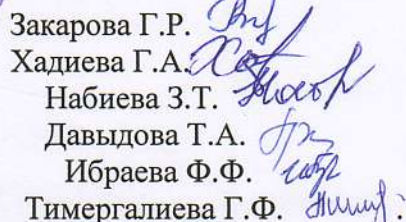 Закарова Г.Р.
Хадиева Г.А.
Набиева З.Т.
Давыдова Т.А.
Ибраева Ф.Ф.
Тимергалиева Г.Ф.